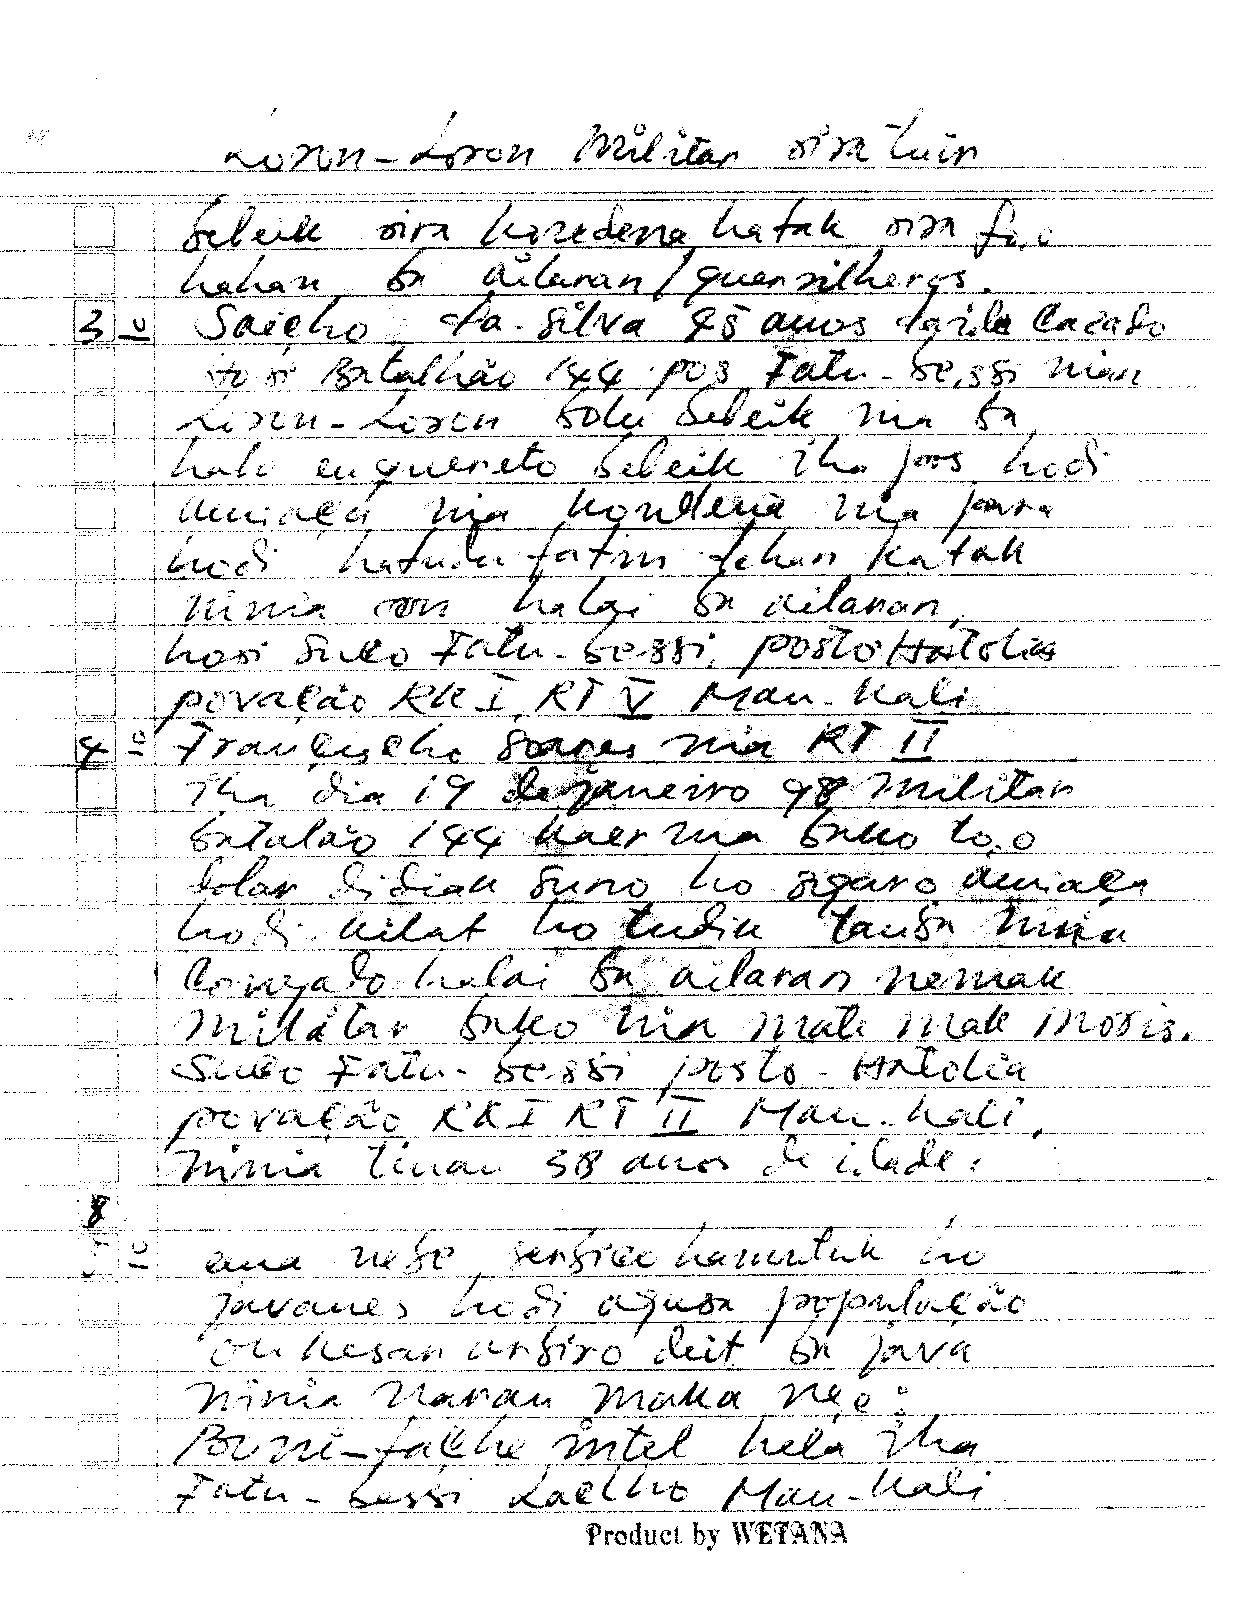 Loron-Loron Militar sira tuir
beleik sira haredena hatak sira fo.o
hahan ba ailaran/guerrilheros.
3 o da-Silva 45 anos Cazado
Batalhão 144 pos Fatu-bessi nian
Loron-Loron bolu beleik nia ba
halo enquereto beleik iha pos hodi
amiaça nia nia para
hodi hatudu fatin katak
ninia oan halai ba ailaran,
hosi suco Fatu-bessi, posto Hatolia
povação RK I RT V Mau-Kali
4 o Françyscho Soares nia RT II
iha dia 19 de janeiro 98 Militar
batalão 144 kaer nia buko to.o
dolar didiak suno ho sigaro amiaça
hodi kilat ho tudik tauba ninia
Conzado halai ba ailaran nemak
Militar buko nia mate mak moris.
Suco Fatu-bessi posto-Hatolia
povação RK I RT II Mau-kali,
ninia tinan 38 anos de idade:
8
o ema nebe serbico hamutuk ho
javanes hodi agusa população
ou kesar arbiro deit ba java
ninia naran maka ne.e:
Boni-façhe intel hela iha
Fatu-bessi Laclho Mau-kali
Product by WETANA